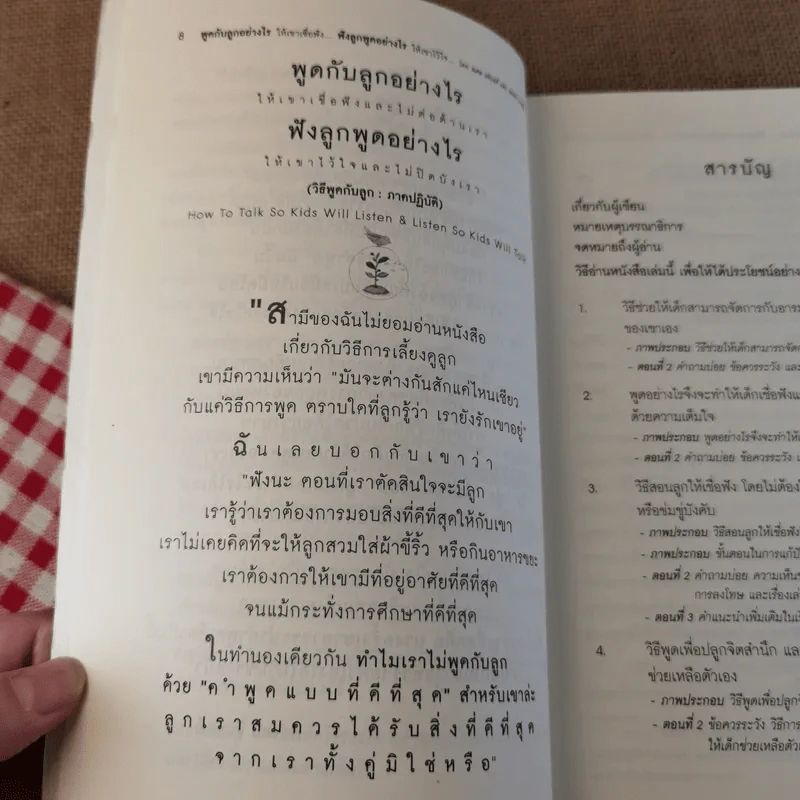 8 พูดกับลูกอย่างไร ให้เขาเชื่อฟัง... ฟังลูกพูดอย่างไร ให้เขาไว้ใจ...
พูดกับลูกอย่างไร
ให้เขาเชื่อฟังและไม่ต่อต้านเรา
ฟังลูกพูดอย่างไร
ให้เขาไว้ใจและไม่ปิดบังเรา
(วิธีพูดกับลูก : ภาคปฏิบัติ)
How To Talk So Kids Will Listen & Listen So Kids Will Talk
"สามีของฉันไม่ยอมอ่านหนังสือ
เกี่ยวกับวิธีการเลี้ยงดูลูก
เขามีความเห็นว่า "มันจะต่างกันสักแค่ไหนเชียว
กับแค่วิธีการพูด ตราบใดที่ลูกรู้ว่า เรายังรักเขาอยู่"
ฉันเลยบอกกับเขาว่า
"ฟังนะ ตอนที่เราตัดสินใจจะมีลูก
เรารู้ว่าเราต้องการมอบสิ่งที่ดีที่สุดให้กับเขา
เราไม่เคยคิดที่จะให้ลูกสวมใส่ผ้าขี้ริ้ว หรือกินอาหารขยะ
เราต้องการให้เขามีที่อยู่อาศัยที่ดีที่สุด
จนแม้กระทั่งการศึกษาที่ดีที่สุด
ในทำนองเดียวกัน ทำไมเราไม่พูดกับลูก
ด้วย "คำพูดแบบที่ดีที่สุด" สำหรับเขาล่ะ
ลูกเราสมควรได้รับสิ่งที่ดีที่สุด
จากเราทั้งคู่มิใช่หรือ"
สารบัญ
เกี่ยวกับผู้เขียน
หมายเหตุบรรณาธิการ
จดหมายถึงผู้อ่าน
วิธีอ่านหนังสือเล่มนี้ เพื่อให้ได้ประโยชน์อย่าง
1. วิธีช่วยให้เด็กสามารถจัดการกับอารม
ของเขาเอง
- ภาพประกอบ วิธีช่วยให้เด็กสามารถจัดก
- ตอนที่ 2 คำถามบ่อย ข้อควรระวัง และ
2. พูดอย่างไรจึงจะทำให้เด็กเชื่อฟังแ
ด้วยความเต็มใจ
- ภาพประกอบ พูดอย่างไรจึงจะทำให้เ
- ตอนที่ 2 คำถามบ่อย ข้อควรระวัง แ
3. วิธีสอนลูกให้เชื่อฟัง โดยไม่ต้องใ
หรือข่มขู่บังคับ
- ภาพประกอบ วิธีสอนลูกให้เชื่อฟัง
- ภาพประกอบ ขั้นตอนในการแก้ปั
- ตอนที่ 2 คำถามบ่อย ความเห็นข
การลงโทษ และเรื่องเล่
- ตอนที่ 3 คำแนะนำเพิ่มเติมในเรื
4. วิธีพูดเพื่อปลูกจิตสำนึก และ
ช่วยเหลือตัวเอง
- ภาพประกอบ วิธีพูดเพื่อปลูกจิ
- ตอนที่ 2 ข้อควรระวัง วิธีการ
ให้เด็กช่วยเหลือตัวเ